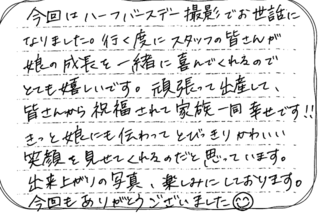 今回はハーフバースデー撮影でお世話に
なりました。行く度にスタッフの皆さんが
娘の成長を一緒に喜んでくれるので
とても嬉しいです。頑張って出産して、
皆さんから祝福されて家族一同幸せです!!
きっと娘にも伝わってとびきりかわいい
笑顔を見せてくれるのだと思っています。
出来上がりの写真、楽しみにしております。
今回もありがとうございました